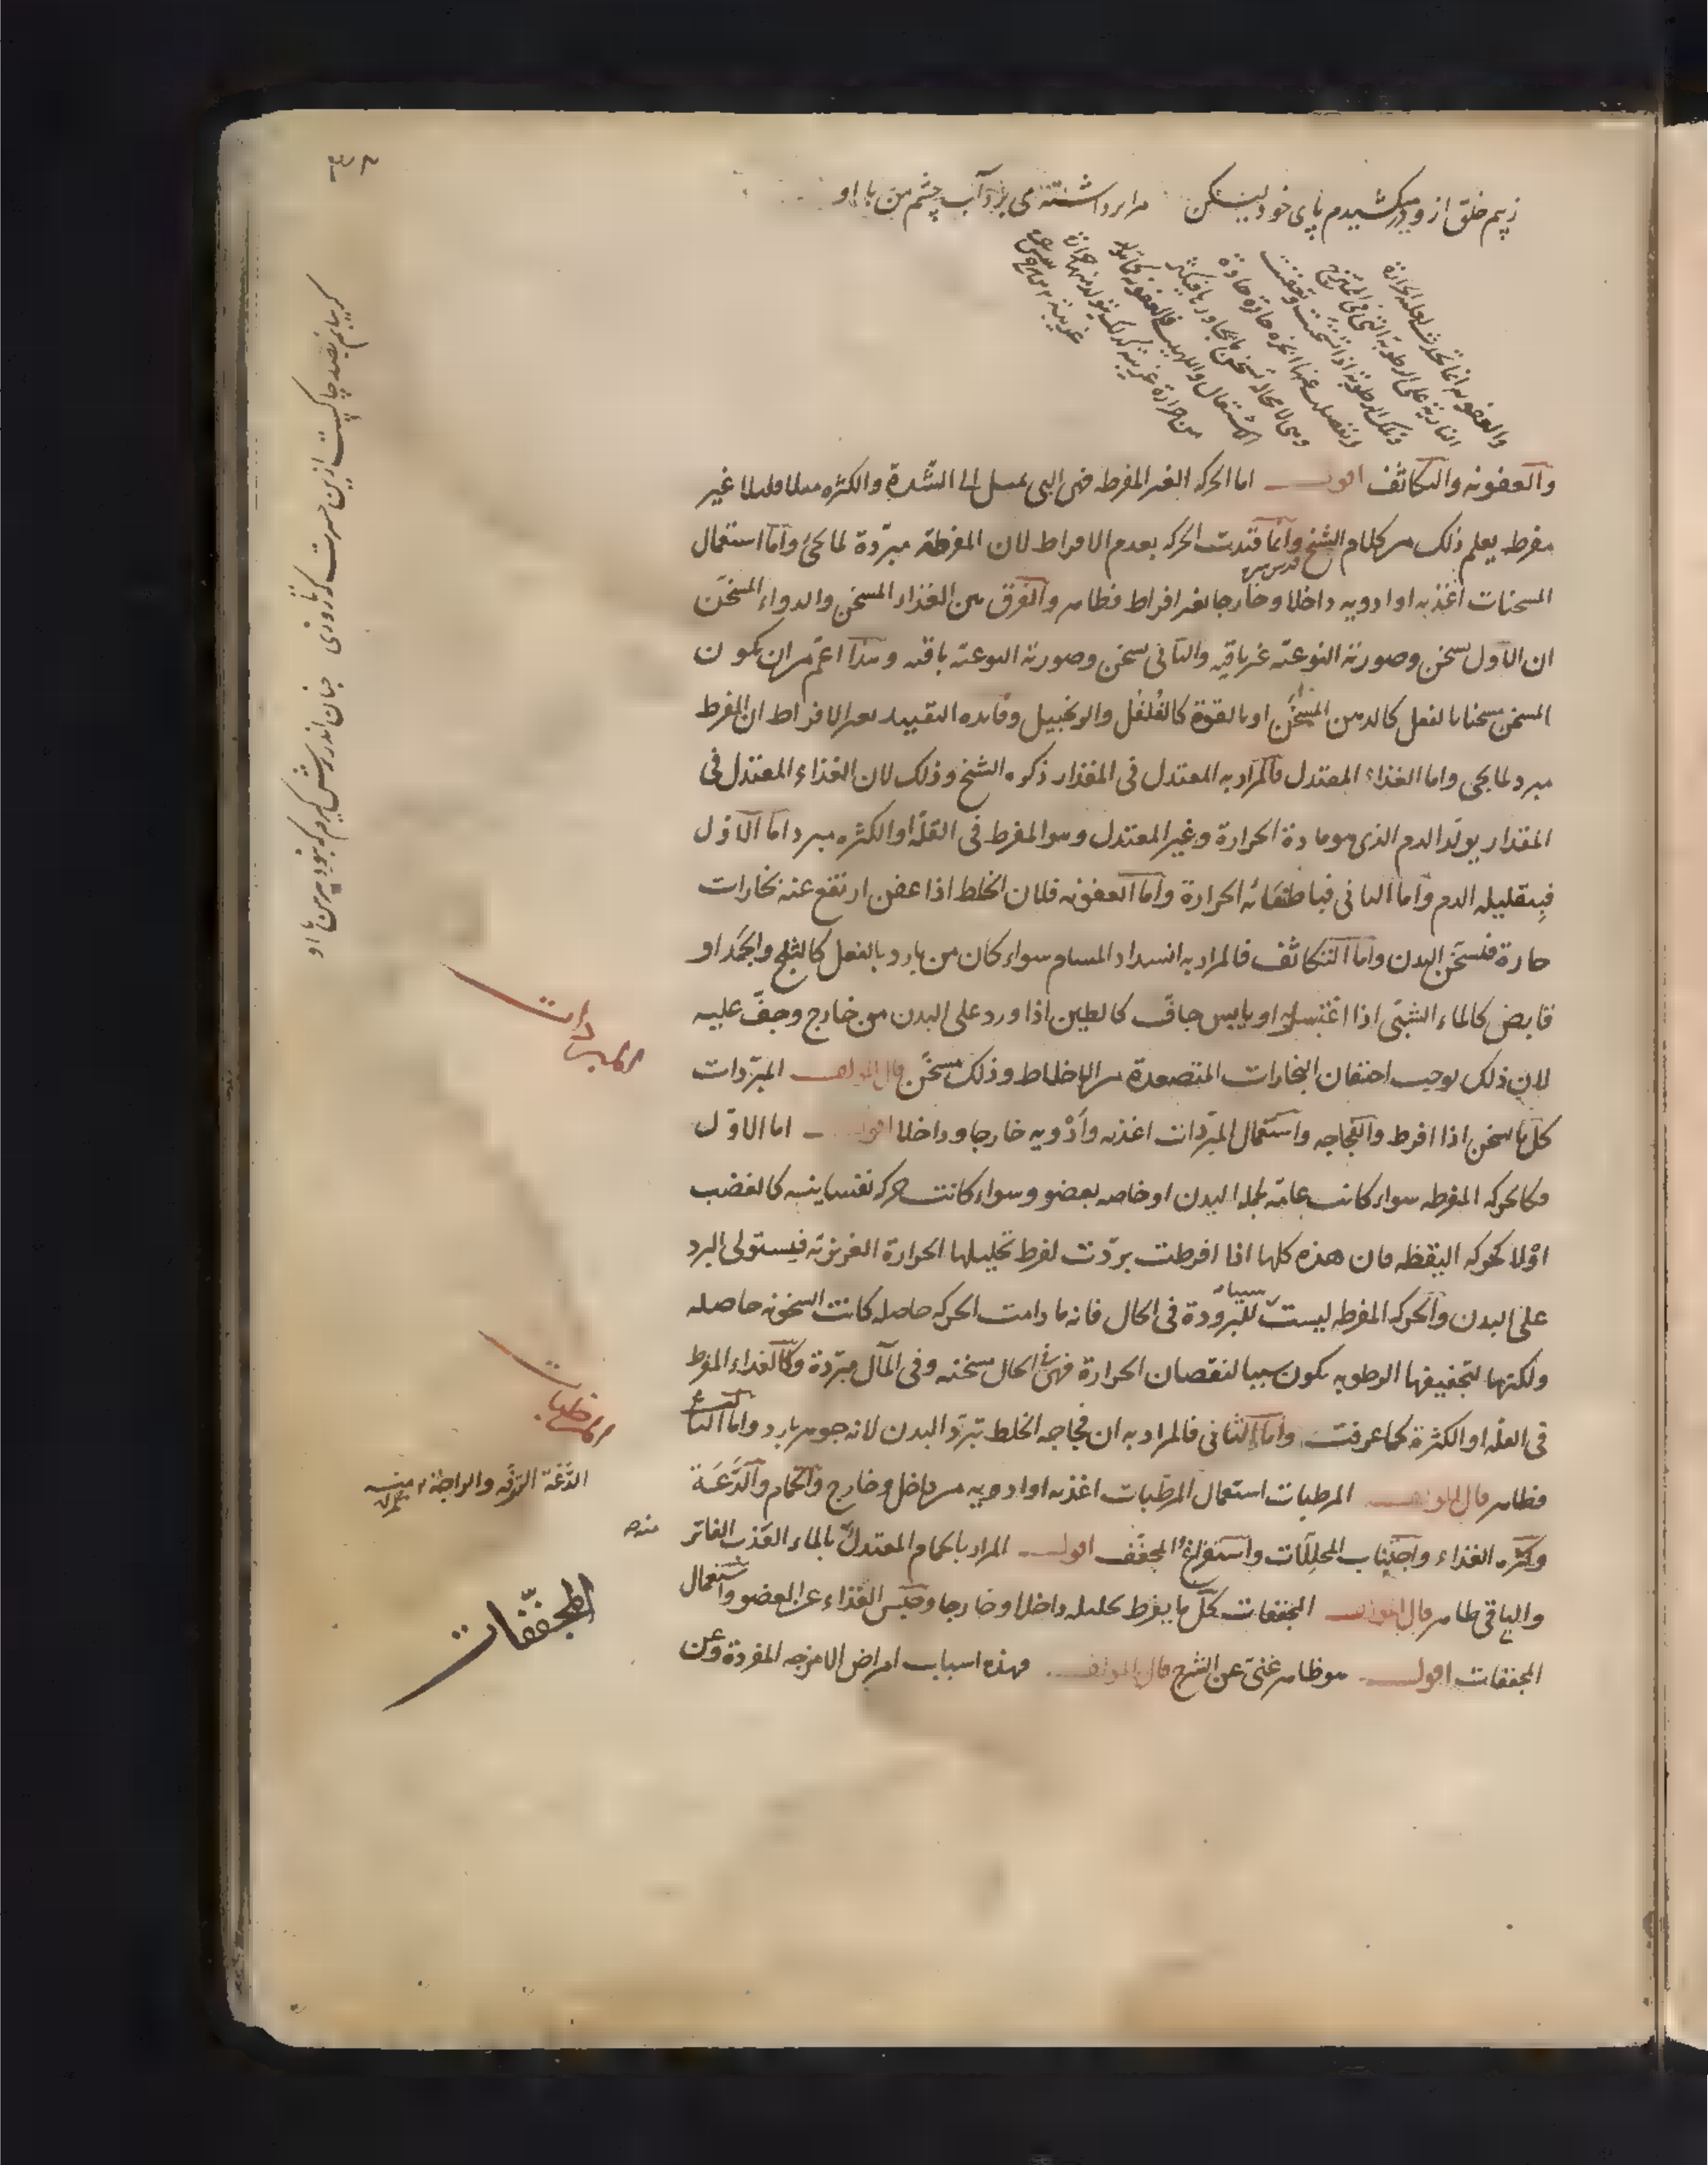 ز بیم خلق ازو در میکشیدم پای خود لیکن مرا برداشته می برد آب چشم من با او
والعفونه انما تحدث لغلبه الحرارة
والعفونه والتكاثف اقول اما الحركه الغير المفرطه فهى التى تميل الى الشدة والكثره ميلا قليلا غير
مفرطه يعلم ذلك من كلام الشيخ قدس سره وانما قيدت الحركه بعدم الافراط لان المفرطة مبردة لما يجئ واما استعمال
المسخنات اغذيه او ادويه داخلا وخارجا بغير افراط فظاهر والفرق بين الغذاء المسخن والدواء المسخن
ان الاول يسخن وصورته النوعيه غير باقيه والثانى يسخن وصورته النوعيه باقيه وهذا اعم من ان يكون
المسخن مسخنا بالفعل كالدهن المسخن او بالقوة كالفلفل والزنجبيل وفايده التقييد بغير الافراط ان المفرط
مبرد لما يجى واما الغذاء المعتدل فالمراد به المعتدل فى المقدار ذكره الشيخ وذلك لان الغذاء المعتدل فى
المقدار يولد الدم الذى هو مادة الحرارة وغير المعتدل وهو المفرط فى القلة او الكثره مبرد اما الاول
فبتقليله الدم واما الثانى فباطفائه الحرارة واما العفونه فلان الخلط اذا عفن ارتفع عنه بخارات
حارة فتسخن البدن واما التكاثف فالمراد به انسداد المسام سواء كان من بارد بالفعل كالثلج والجمد او
قابض كالماء الشبى اذا اغتسل به او يابس جاف كالطين اذا ورد على البدن من خارج وجف عليه
لان ذلك يوجب احتقان البخارات المتصعدة من الاخلاط وذلك مسخن قال المولف المبردات
كل ما يسخن اذا افرط والفجاجه واستعمال المبردات اغذيه وادويه خارجا وداخلا اقول اما الاول
فكالحركه المفرطه سواء كانت عامة لجملة البدن او خاصه بعضو وسواء كانت حركه نفسانيه كالغضب
او لا كحركه اليقظه فان هذه كلها اذا افرطت بردت لفرط تحليلها الحرارة الغريزية فيستولى البرد
على البدن والحركه المفرطه ليست سببا للبرودة فى الحال فانه ما دامت الحركه حاصله كانت السخونه حاصله
ولكنها لتجفيفها الرطوبه يكون سببا لنقصان الحرارة فهى فى الحال مسخنه وفى المآل مبردة وكالغذاء المفرط
فى القلة او الكثرة كما عرفت واما الثانى فالمراد به ان فجاجه الخلط تبرد البدن لانه جوهر بارد واما الثالث
فظاهر قال المولف المرطبات استعمال المرطبات اغذيه او ادويه من داخل وخارج والحمام والدعة
وكثره الغذاء واجتناب المحللات واستفراغ المجفف اقول المراد بالحمام المعتدل بالماء العذب الفاتر
والباقى ظاهر قال المولف المجففات كل ما يفرط تحليله داخلا وخارجا وحبس الغذاء عن العضو واستعمال
المجففات اقول هو ظاهر غنى عن الشرح قال المولف فهذه اسباب امراض الامزجه المفردة وعن
المبردات
المرطبات
الدعة الترفه والراحة
منه
المجففات